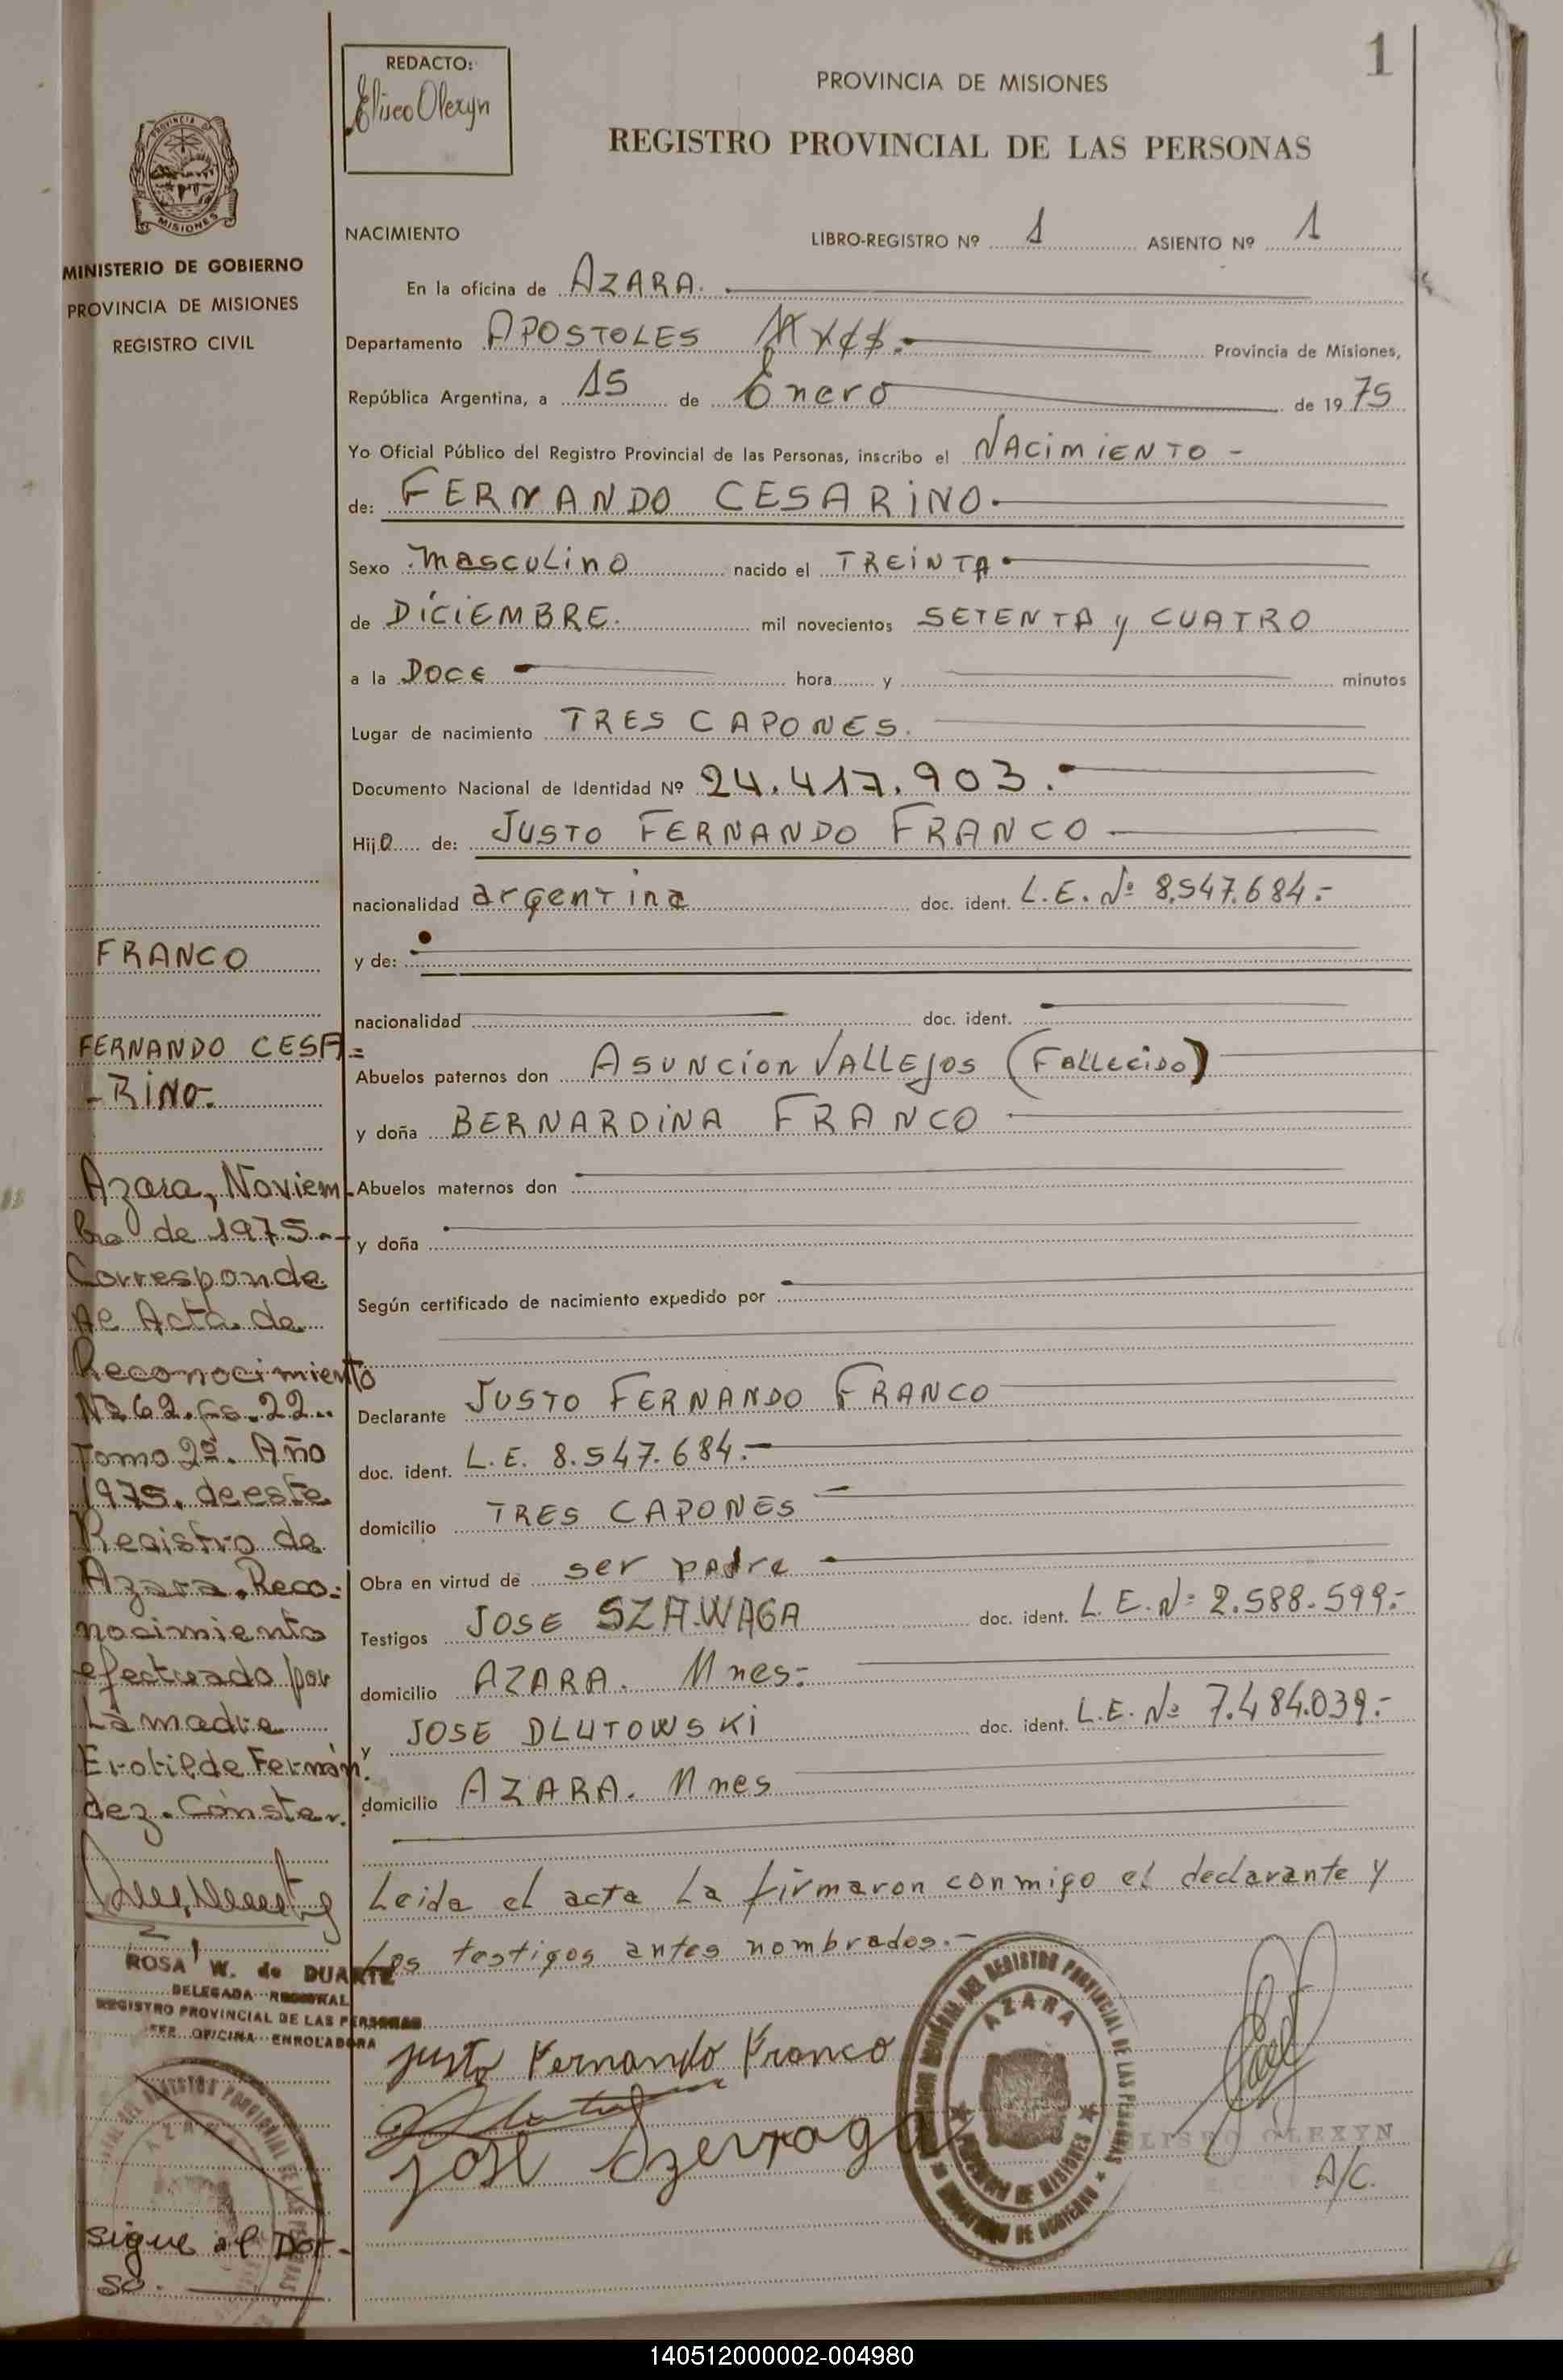 1
REDACTO:
Eliseo Olexyn
PROVINCIA DE MISIONES
REGISTRO PROVINCIAL DE LAS PERSONAS
PROVINCIA DE
MISIONES
MINISTERIO DE GOBIERNO
PROVINCIA DE MISIONES
REGISTRO CIVIL
NACIMIENTO LIBRO-REGISTRO Nº 1 ASIENTO Nº 1
En la oficina de AZARA.
Departamento APOSTOLES Provincia de Misiones,
República Argentina, a 15 de Enero de 1975
Yo Oficial Público del Registro Provincial de las Personas, inscribo el NACIMIENTO -
de: FERNANDO CESARINO
Sexo masculino nacido el TREINTA
de DICIEMBRE. mil novecientos SETENTA y CUATRO
a la DOCE hora y minutos
Lugar de nacimiento TRES CAPONES.
Documento Nacional de Identidad Nº 24.417.903.
Hijo de: JUSTO FERNANDO FRANCO
nacionalidad argentina doc. ident. L.E. Nº 8.547.684.-
y de:
nacionalidad doc. ident.
Abuelos paternos don ASUNCION VALLEJOS (FALLECIDO)
y doña BERNARDINA FRANCO
Abuelos maternos don
y doña
Según certificado de nacimiento expedido por
Declarante JUSTO FERNANDO FRANCO
doc. ident. L.E. 8.547.684.-
domicilio TRES CAPONES
Obra en virtud de ser padre
Testigos JOSE SZAWAGA doc. ident. L.E. Nº 2.588.599.-
domicilio AZARA. Mnes.
y JOSE DLUTOWSKI doc. ident. L.E. Nº 7.484.039.-
domicilio AZARA. Mnes
Leida el acta La firmaron conmigo el declarante y
Los testigos antes nombrados.-
justo Fernando Franco
José
AZARA
PROVINCIA DE MISIONES
ELISEO OLEXYN
A/C.
FRANCO
FERNANDO CESA=
-RINO-
Azara, Noviem-
bre de 1975.-
Corresponde
Al Acta de
Reconocimiento
Nº62.fs.22..
Tomo 2º. Año
1975. de este
Registro de
Azara. Reco-
nocimiento
efectuado por
La madre
Erotilde Fernán.
dez. Conste.
ROSA W. de DUARTE
DELEGADA REGIONAL
REGISTRO PROVINCIAL DE LAS PERSONAS
JEFE OFICINA ENROLADORA
Sigue al Dor-
so.
140512000002-004980